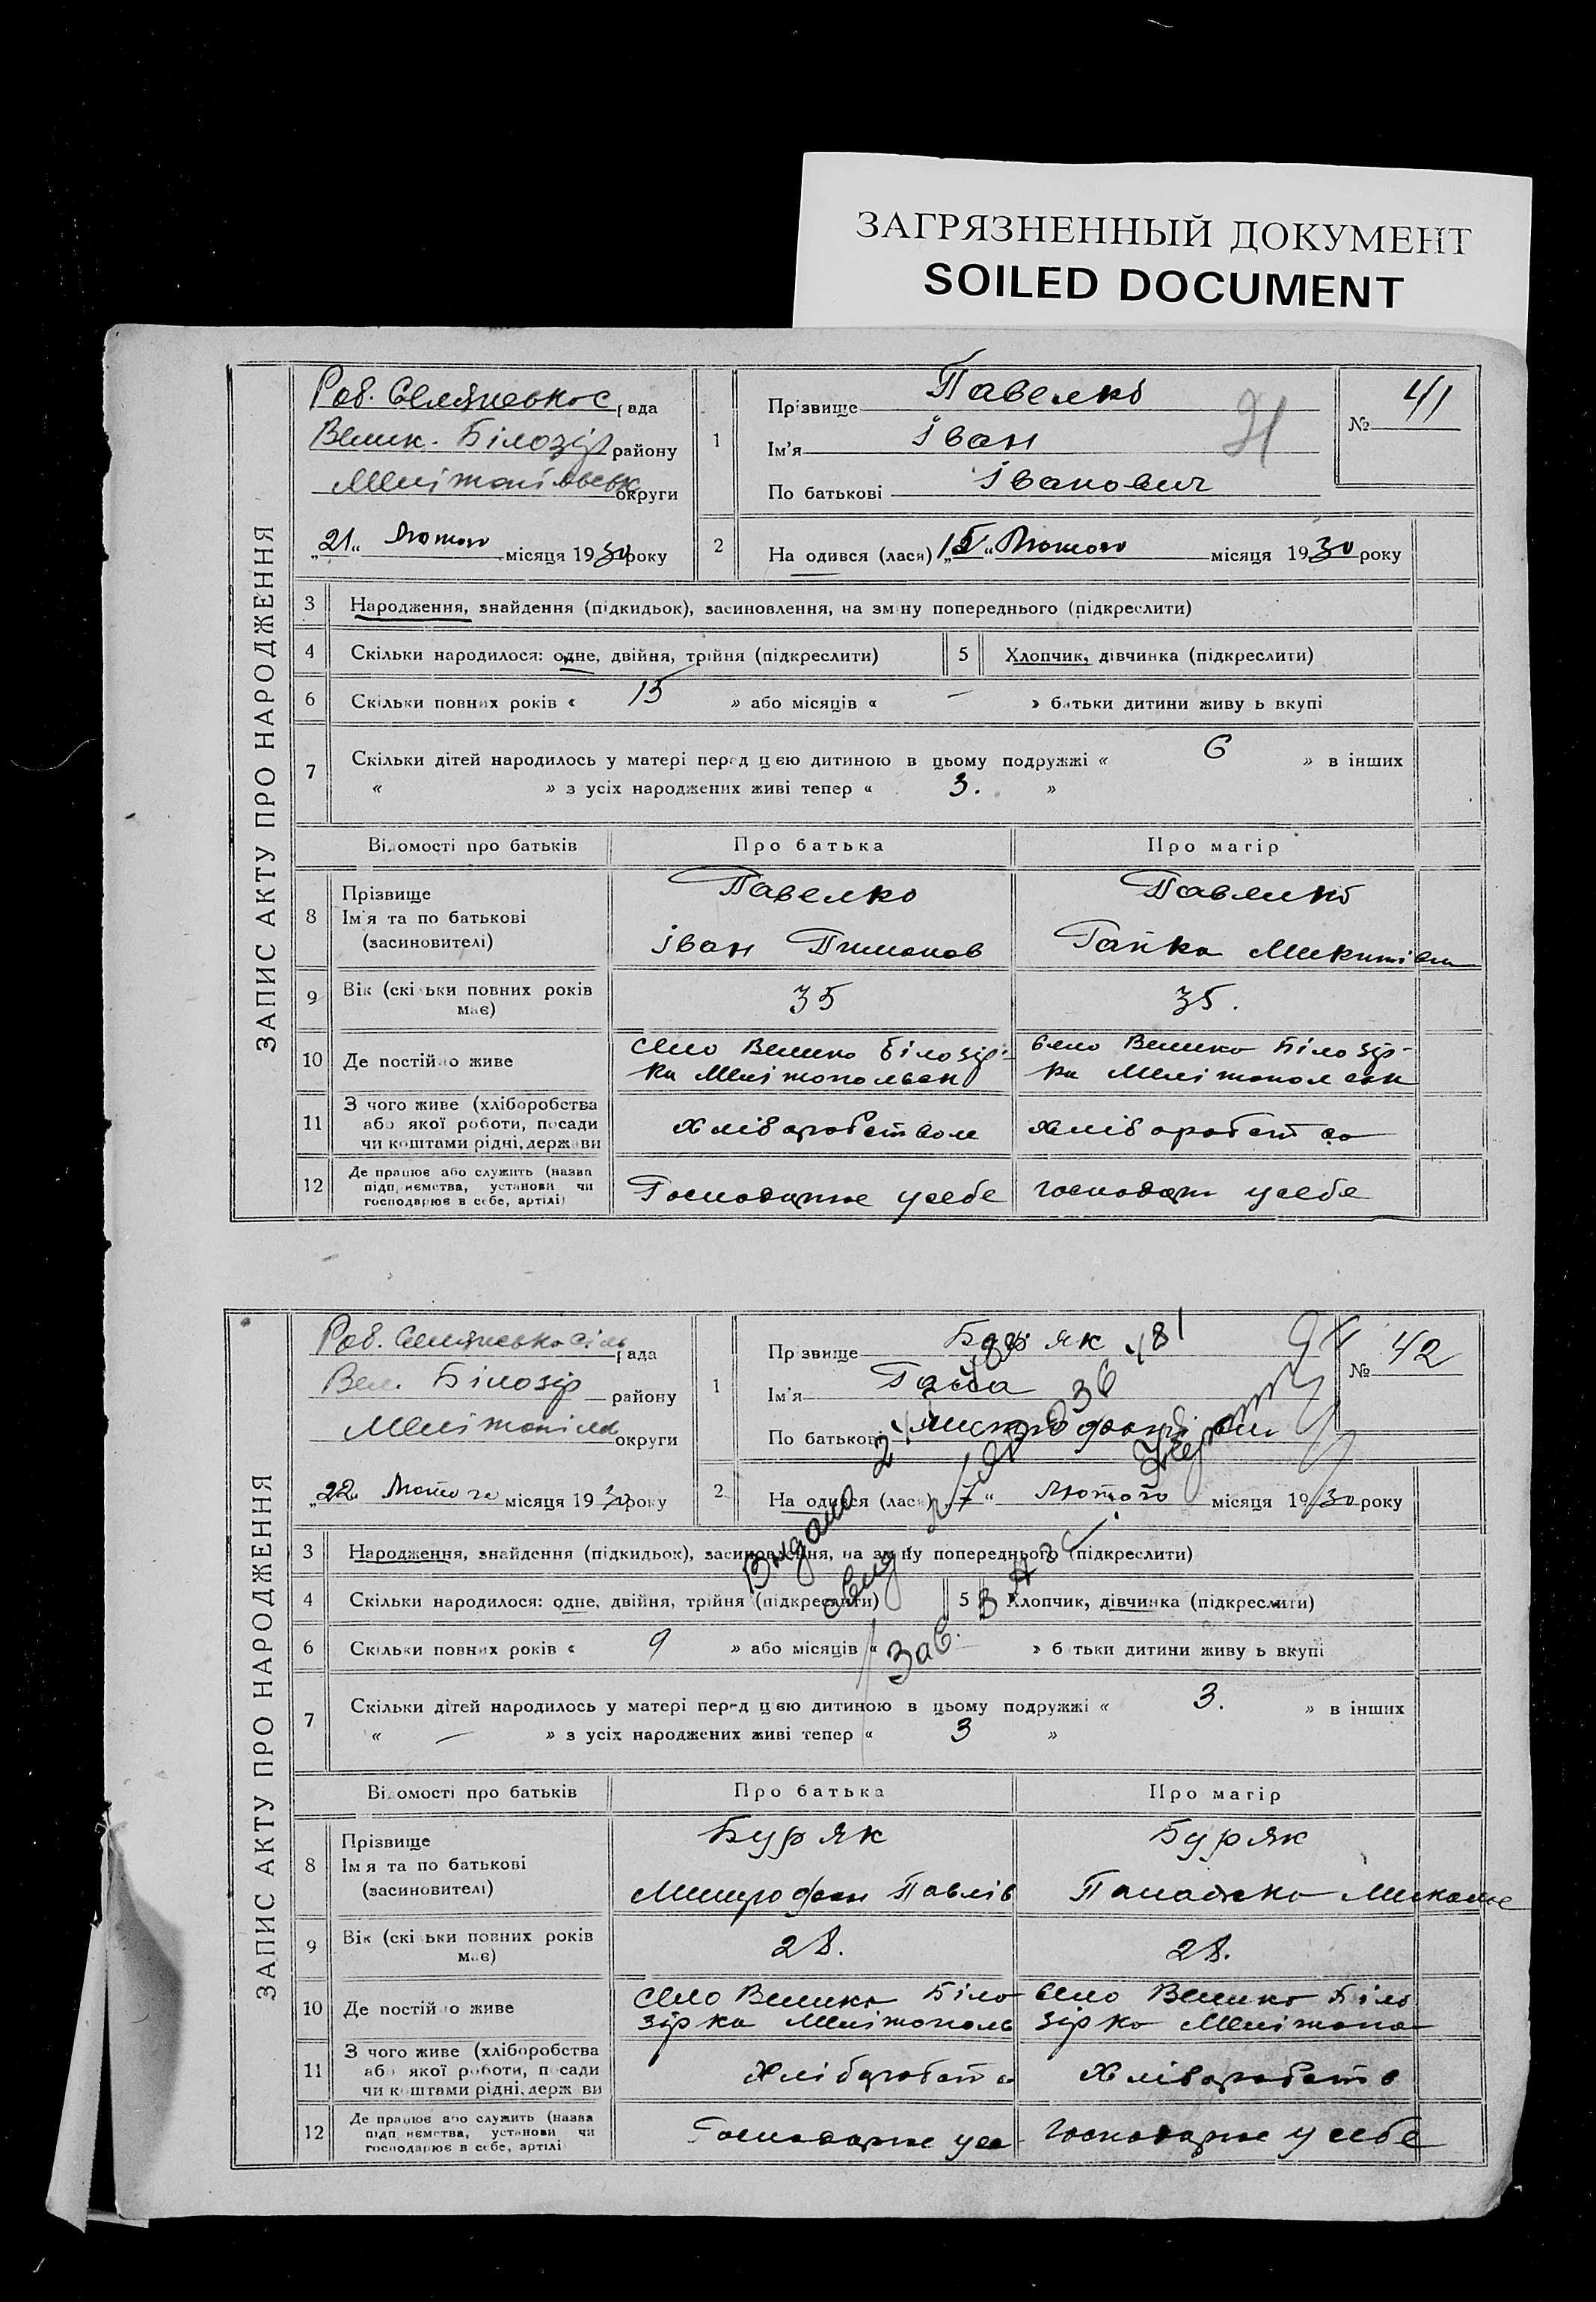 ЗАГРЯЗНЕННЫЙ ДОКУМЕНТ
SOILED DOCUMENT
ЗАПИС АКТУ ПРО НАРОДЖЕННЯ
Роб. Селянськос рада
Велик. Білозір району
Мелітопільськ округи
„21“ Лютого місяця 1930 року
1
Прізвище Павелко
Ім'я Іван
По батькові Іванович
№ 41
2
На одився (лася) „15“ Лютого місяця 1930 року
3 Народження, знайдення (підкидьок), засиновлення, на зміну попереднього (підкреслити)
4 Скільки народилося: одне, двійня, трійня (підкреслити)
5 Хлопчик, дівчинка (підкреслити)
6 Скільки повних років « 15 » або місяців « — » батьки дитини живу ь вкупі
7 Скільки дітей народилось у матері перед цією дитиною в цьому подружжі « 6 » в інших
« » з усіх народжених живі тепер « 3. »
Відомості про батьків Про батька Про матір
8 Прізвище
Ім'я та по батькові
(засиновителі)
Павелко
Іван
Павелко
Микитівн
9 Вік (скільки повних років
має)
35
35.
10 Де постійно живе
село Велико Білозір-
ка Мелітопольськ
село Велико Білозір-
ка Мелітопол
11 З чого живе (хліборобства
або якої роботи, посади
чи коштами рідні, держави
хліборобством
хліборобст
12 Де працює або служить (назва
підприємства, установи чи
господарює в себе, артілі)
Господарює у себе
господарю у себе
ЗАПИС АКТУ ПРО НАРОДЖЕННЯ
Роб. Селянсько сіль рада
Вел. Білозір району
Мелітопіль округи
„22“ Лютого місяця 1930 року
1
Прізвище Буряк
Ім'я
По батькові
№ 42
2
На одився (лася) „17“ лютого місяця 1930 року
Видано
Зав. ЗАГС
3 Народження, знайдення (підкидьок), засиновлення, на зміну попереднього (підкреслити)
4 Скільки народилося: одне, двійня, трійня (підкреслити)
5 Хлопчик, дівчинка (підкреслити)
6 Скільки повних років « 9 » або місяців « » батьки дитини живу ь вкупі
7 Скільки дітей народилось у матері перед цією дитиною в цьому подружжі « 3. » в інших
« — » з усіх народжених живі тепер « 3 »
Відомості про батьків Про батька Про матір
8 Прізвище
Імя та по батькові
(засиновителі)
Буряк
Митрофан Павлів
Буряк
9 Вік (скільки повних років
має)
28.
28.
10 Де постійно живе
село Велико Біло
зірка Мелітополь
село Велико Біло
зірка Мелітопо
11 З чого живе (хліборобства
або якої роботи, посади
чи коштами рідні, держави
Хліборобст
Хліборобств
12 Де працює або служить (назва
підприємства, установи чи
господарює в себе, артілі
Господарює у се
господарює у себе